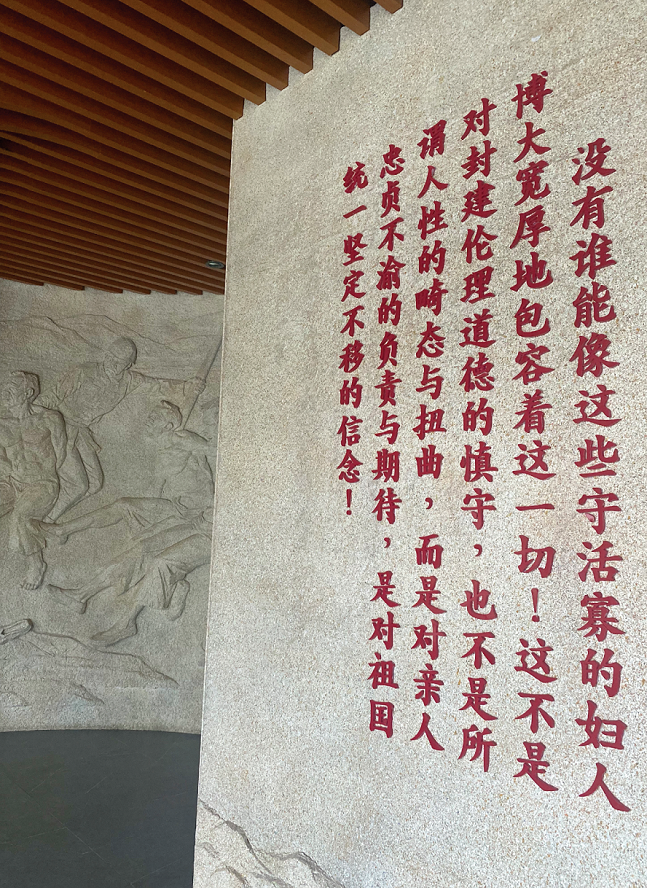 没有谁能像这些守活寡的妇人
博大宽厚地包容着这一切！这不是
对封建伦理道德的慎守，也不是所
谓人性的畸态与扭曲，而是对亲人
忠贞不渝的负责与期待，是对祖国
统一坚定不移的信念！